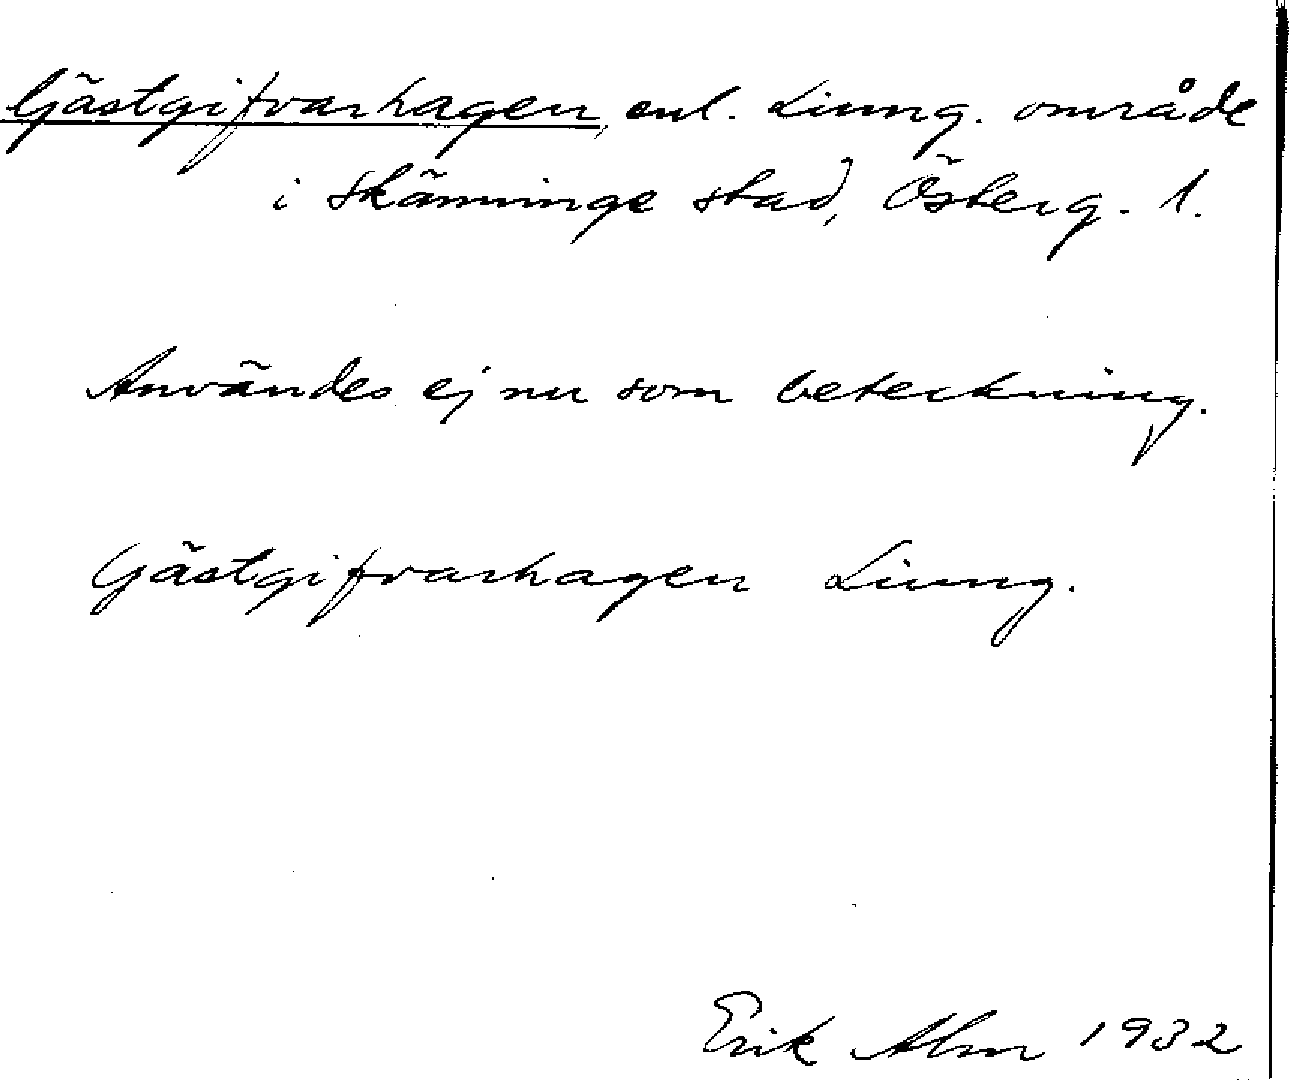 Gästgifvarhagen, enl. Liung. område
i Skänninge stad, Österg. l.
Användes ej nu som beteckning.
Gästgifvarhagen Liung.
Erik Alm 1932